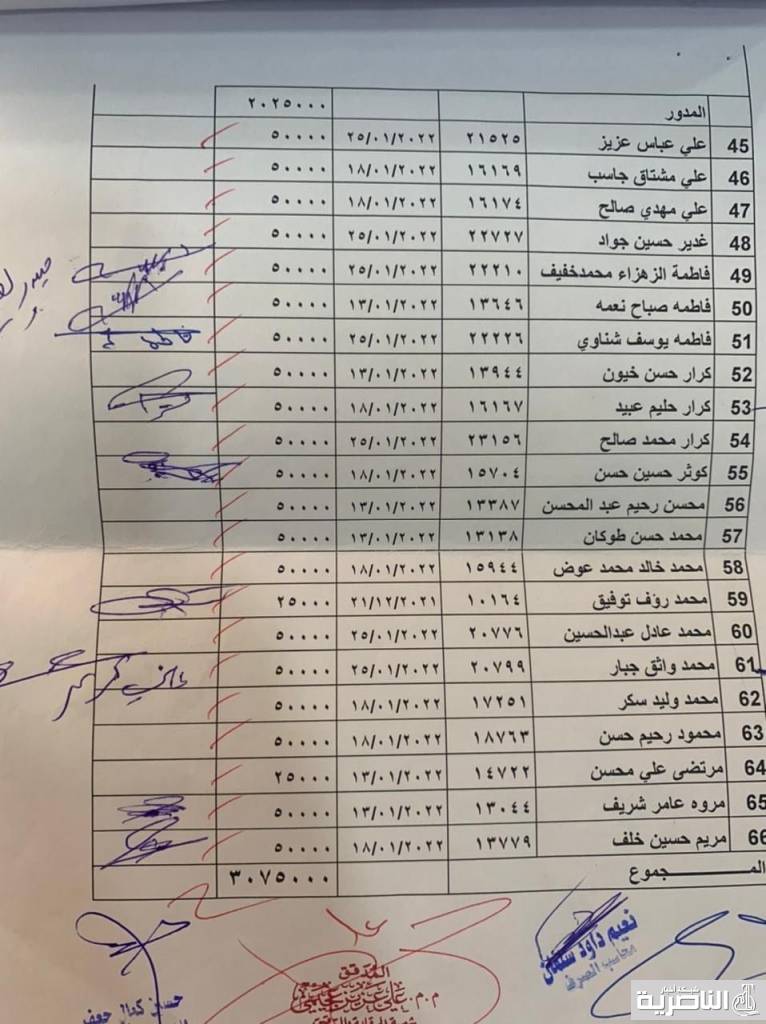 المدور ٢٠٢٥٠٠٠
45 علي عباس عزيز ٢١٥٢٥ ٢٥/٠١/٢٠٢٢ ٥٠٠٠٠
46 علي مشتاق جاسب ١٦١٦٩ ١٨/٠١/٢٠٢٢ ٥٠٠٠٠
47 علي مهدي صالح ١٦١٧٤ ١٨/٠١/٢٠٢٢ ٥٠٠٠٠
48 غدير حسين جواد ٢٢٧٢٧ ٢٥/٠١/٢٠٢٢ ٥٠٠٠٠
49 فاطمة الزهزاء محمدخفيف ٢٢٢١٠ ٢٥/٠١/٢٠٢٢ ٥٠٠٠٠
50 فاطمه صباح نعمه ١٣٦٤٦ ١٣/٠١/٢٠٢٢ ٥٠٠٠٠
51 فاطمه يوسف شناوي ٢٢٢٢٦ ٢٥/٠١/٢٠٢٢ ٥٠٠٠٠
52 كرار حسن خيون ١٣٩٤٤ ١٣/٠١/٢٠٢٢ ٥٠٠٠٠
53 كرار حليم عبيد ١٦١٦٧ ١٨/٠١/٢٠٢٢ ٥٠٠٠٠
54 كرار محمد صالح ٢٣١٥٦ ٢٥/٠١/٢٠٢٢ ٥٠٠٠٠
55 كوثر حسين حسن ١٥٧٠٤ ١٨/٠١/٢٠٢٢ ٥٠٠٠٠
56 محسن رحيم عبد المحسن ١٣٣٨٧ ١٣/٠١/٢٠٢٢ ٥٠٠٠٠
57 محمد حسن طوكان ١٣١٣٨ ١٣/٠١/٢٠٢٢ ٥٠٠٠٠
58 محمد خالد محمد عوض ١٥٩٤٤ ١٨/٠١/٢٠٢٢ ٥٠٠٠٠
59 محمد رؤف توفيق ١٠١٦٤ ٢١/١٢/٢٠٢١ ٢٥٠٠٠
60 محمد عادل عبدالحسين ٢٠٧٧٦ ٢٥/٠١/٢٠٢٢ ٥٠٠٠٠
61 محمد واثق جبار ٢٠٧٩٩ ٢٥/٠١/٢٠٢٢ ٥٠٠٠٠
62 محمد وليد سكر ١٧٢٥١ ١٨/٠١/٢٠٢٢ ٥٠٠٠٠
63 محمود رحيم حسن ١٨٧٦٣ ١٨/٠١/٢٠٢٢ ٥٠٠٠٠
64 مرتضى علي محسن ١٤٧٢٢ ١٣/٠١/٢٠٢٢ ٢٥٠٠٠
65 مروه عامر شريف ١٣٠٤٤ ١٣/٠١/٢٠٢٢ ٥٠٠٠٠
66 مريم حسين خلف ١٣٧٧٩ ١٨/٠١/٢٠٢٢ ٥٠٠٠٠
المـــــــجموع ٣٠٧٥٠٠٠
نعيم داود
محاسب الصرف
المدقق
م.م. علي عزيز
حسين كمال جعفر
الناصرية